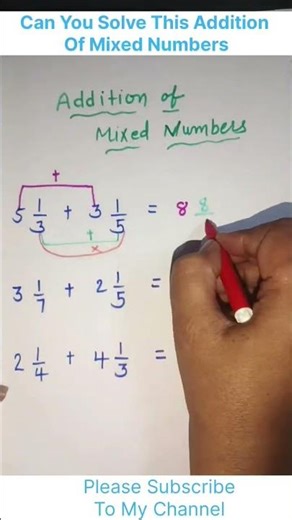 Can You Solve This Addition
Of Mixed Numbers
Addition of
Mixed Numbers
+
5 1/3 + 3 1/5 = 8 8/
+
×
3 1/7 + 2 1/5 =
2 1/4 + 4 1/3 =
Please Subscribe
To My Channel